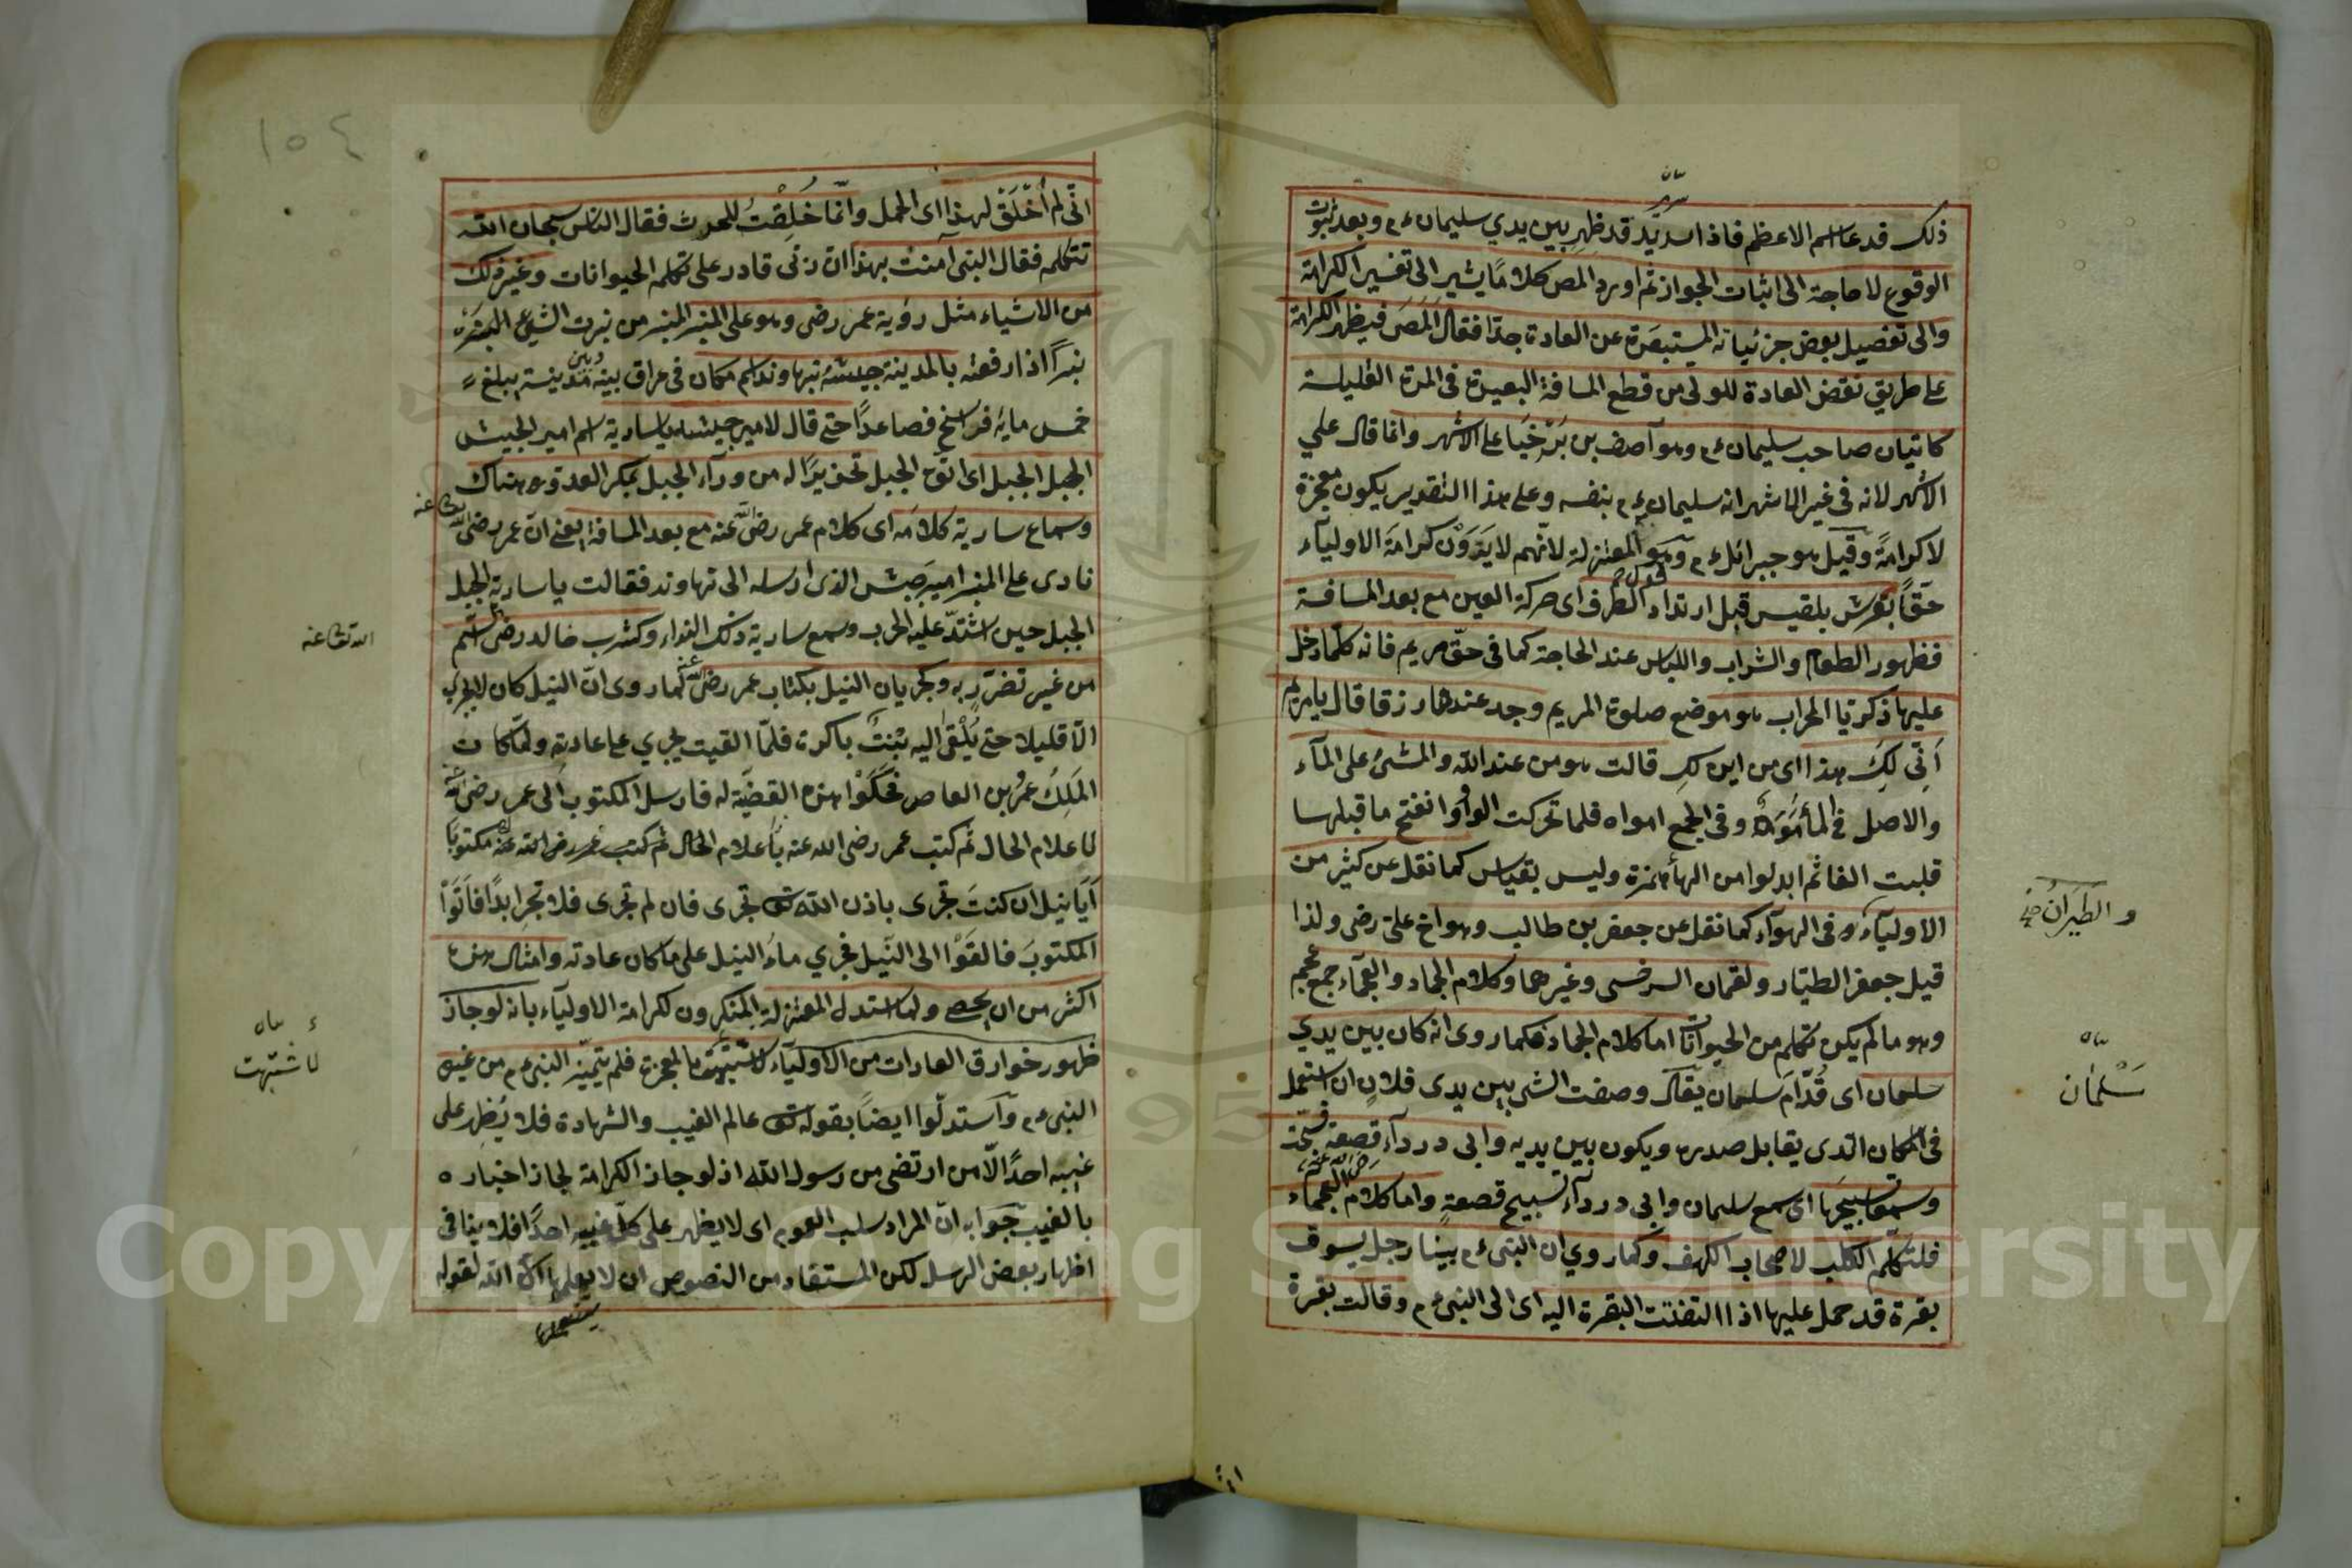 سرير
ذلك قد عا اسم الاعظم فاذا سريد قد ظهر بين يدي سليمان ع م وبعد ثبوت
الوقوع لا حاجة الى اثبات الجواز ثم اورد المص كلاما يشير الى تفسير الكرامة
والى تفصيل بعض جزئياته المستبصرة عن العادة جدا فقال المص فيظهر الكرامة
على طريق نقض العادة للولى من قطع المسافة البعيدة فى المدة القليلة
كاتيان صاحب سليمان ع م وهو آصف بن برخيا على الاشهر وانما قال علي
الاشهر لانه فى غير الاشهر انه سليمان ع م بنفسه وعلى هذا التقدير يكون معجزة
لا كرامة وقيل هو جبرائل ع م وهو قول المعتزلة لانهم لا يرون كرامة الاولياء
حقا بعرش بلقيس قبل ارتداد الطرف اى حركة العين مع بعد المسافة
فظهور الطعام والشراب واللباس عند الحاجة كما فى حق مريم فانه كلما دخل
عليها ذكريا المحراب هو موضع صلوة المريم وجد عندها رزقا قال يا مريم
أنى لك هذا اى من اين لك قالت هو من عند الله والمشئ على المآء
والاصل فى الماء موه وفى الجمع امواه فلما تحركت الواو وانفتح ما قبلها
قلبت الفا ثم ابدلوا من الهاء همزة وليس بقياس كما نقل عن كثير من
الاولياء و فى الهوآء كما نقل عن جعفر بن طالب وهو اخ على رضى ولذا
والطيران صح
قيل جعفر الطيار ولقمان السرخسى وغيرهما وكلام الجماد والعجماء جمع عجم
وهو ما لم يكن تكلم من الحيوانات اما كلام الجماد فكما روى انه كان بين يدي
سلمان اى قدام سلمان يقال وصفت الشئ بين يدى فلان ان استعمل
سلمان
فى المكان الذى يقابل صدره ويكون بين يديه وابى دردآء قصعة فسبحت
وسمعا تسبيحها اى سمع سليمان وابى دردآء تسبيح قصعة واما كلام العجماء
فلتكلم الكلب لاصحاب الكهف وكما روي ان النبى ع م بينا رجل يسوق
بقرة قد حمل عليها اذا التفتت البقرة اليه اى الى النبى ع م وقالت بقرة
١٥٤
انى لم أخلق لهذا اى الحمل وانما خلقت للحرث فقال الناس سبحان الله
تتكلم فقال النبى آمنت بهذا ان ربى قادر على تكلم الحيوانات وغير ذلك
من الاشياء مثل رؤية عمر رضى وهو على المنبر المنبر من نبرت الشئ
نبرا اذا رفعته بالمدينة جيشه بنهاوند اسم مكان فى عراق بينه وبين مدينة يبلغ
خمس مايه فراسخ فصاعدا حتى قال لامير جيشه يا سارية اسم امير الجيش
الجبل الجبل اى اتوا الجبل تحذيرا له من ورآء الجبل بمكر العدو هناك
وسماع سارية كلامه اى كلام عمر رضى الله عنه مع بعد المسافة يعنى ان عمر رضى الله تعالى عنه
نادى على المنبر امير جيش الذى ارسله الى نهاوند فقالت يا سارية الجبل
الجبل حين اشتد عليه الحرب وسمع سارية ذلك النداء وكشرب خالد رضى السم
الله تعالى عنه
من غير تضرر به وكجريان النيل بكتاب عمر رضى الله عنه كما روى ان النيل كان لا يجرى
الا قليلا حتى يلقى اليه بنت باكرة فلما القيت يجري على عادته ولما كان
الملك عمر بن العاص فحكوا هذه القضية له فارسل المكتوب الى عمر رضى الله
لاعلام الحال ثم كتب عمر رضى الله عنه باعلام الحال ثم كتب عمر رضى الله عنه مكتوبا
أيا نيل ان كنت تجرى باذن الله تعالى تجرى فان لم تجرى فلا تجر ابدا فاتوا
المكتوب فالقوا الى النيل فجري ماء النيل على ما كان عادته وامثال هذه
اكثر من ان يحصى ولما استدل المعتزلة المنكرون لكرامة الاولياء بانه لو جاز
ظهور خوارق العادات من الاولياء لاشتبهت بالمعجزة فلم يتميز النبى ع م من غير
لاشتبهت
النبى ع م واستدلوا ايضا بقوله تعالى عالم الغيب والشهادة فلا يظهر على
غيبه احدا الا من ارتضى من رسول الله اذ لو جاز الكرامة لجاز اخباره
بالغيب جوابه ان المراد سلب العموم اى لا يظهر على كل غيبه احدا فلا ينافى
اظهار بعض الرسل لكن المستفاد من النصوص ان لا يعلمها الا الله لقوله